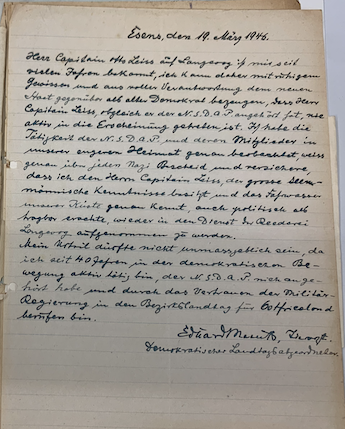 Esens, den 19. März 1946.
Herr Capitain Otto Leiss auf Langeoog ist mir seit
vielen Jahren bekannt, ich kann daher mit ruhigem
Gewissen und aus voller Verantwortung dem neuen
Staat gegenüber als alter Demokrat bezeugen, dass Herr
Capitän Leiss, obgleich er der N.S.D.A.P. angehört hat, nie
aktiv in die Erscheinung getreten ist. Ich habe die
Tätigkeit der N.S.D.A.P. und deren Mitglieder in
unserer engeren Heimat genau beobachtet, weiss
genau über jeden Nazi Bescheid und versichere,
dass ich den Herrn Capitän Leiss, der grosse See-
männische Kenntnisse besitzt und das Fahrwasser
unserer Küste genau kennt, auch politisch als
tragbar erachte, wieder in den Dienst der Reederei
Langeoog aufgenommen zu werden.
Mein Urteil dürfte nicht unmassgeblich sein, da
ich seit 40 Jahren in der demokratischen Be-
wegung aktiv tätig bin, der N.S.D.A.P. nie ange-
hört habe und durch das Vertrauen der Militär-
Regierung in den Bezirkslandtag für Ostfriesland
berufen bin.
Demokratischer Landtagsabgeordneter.